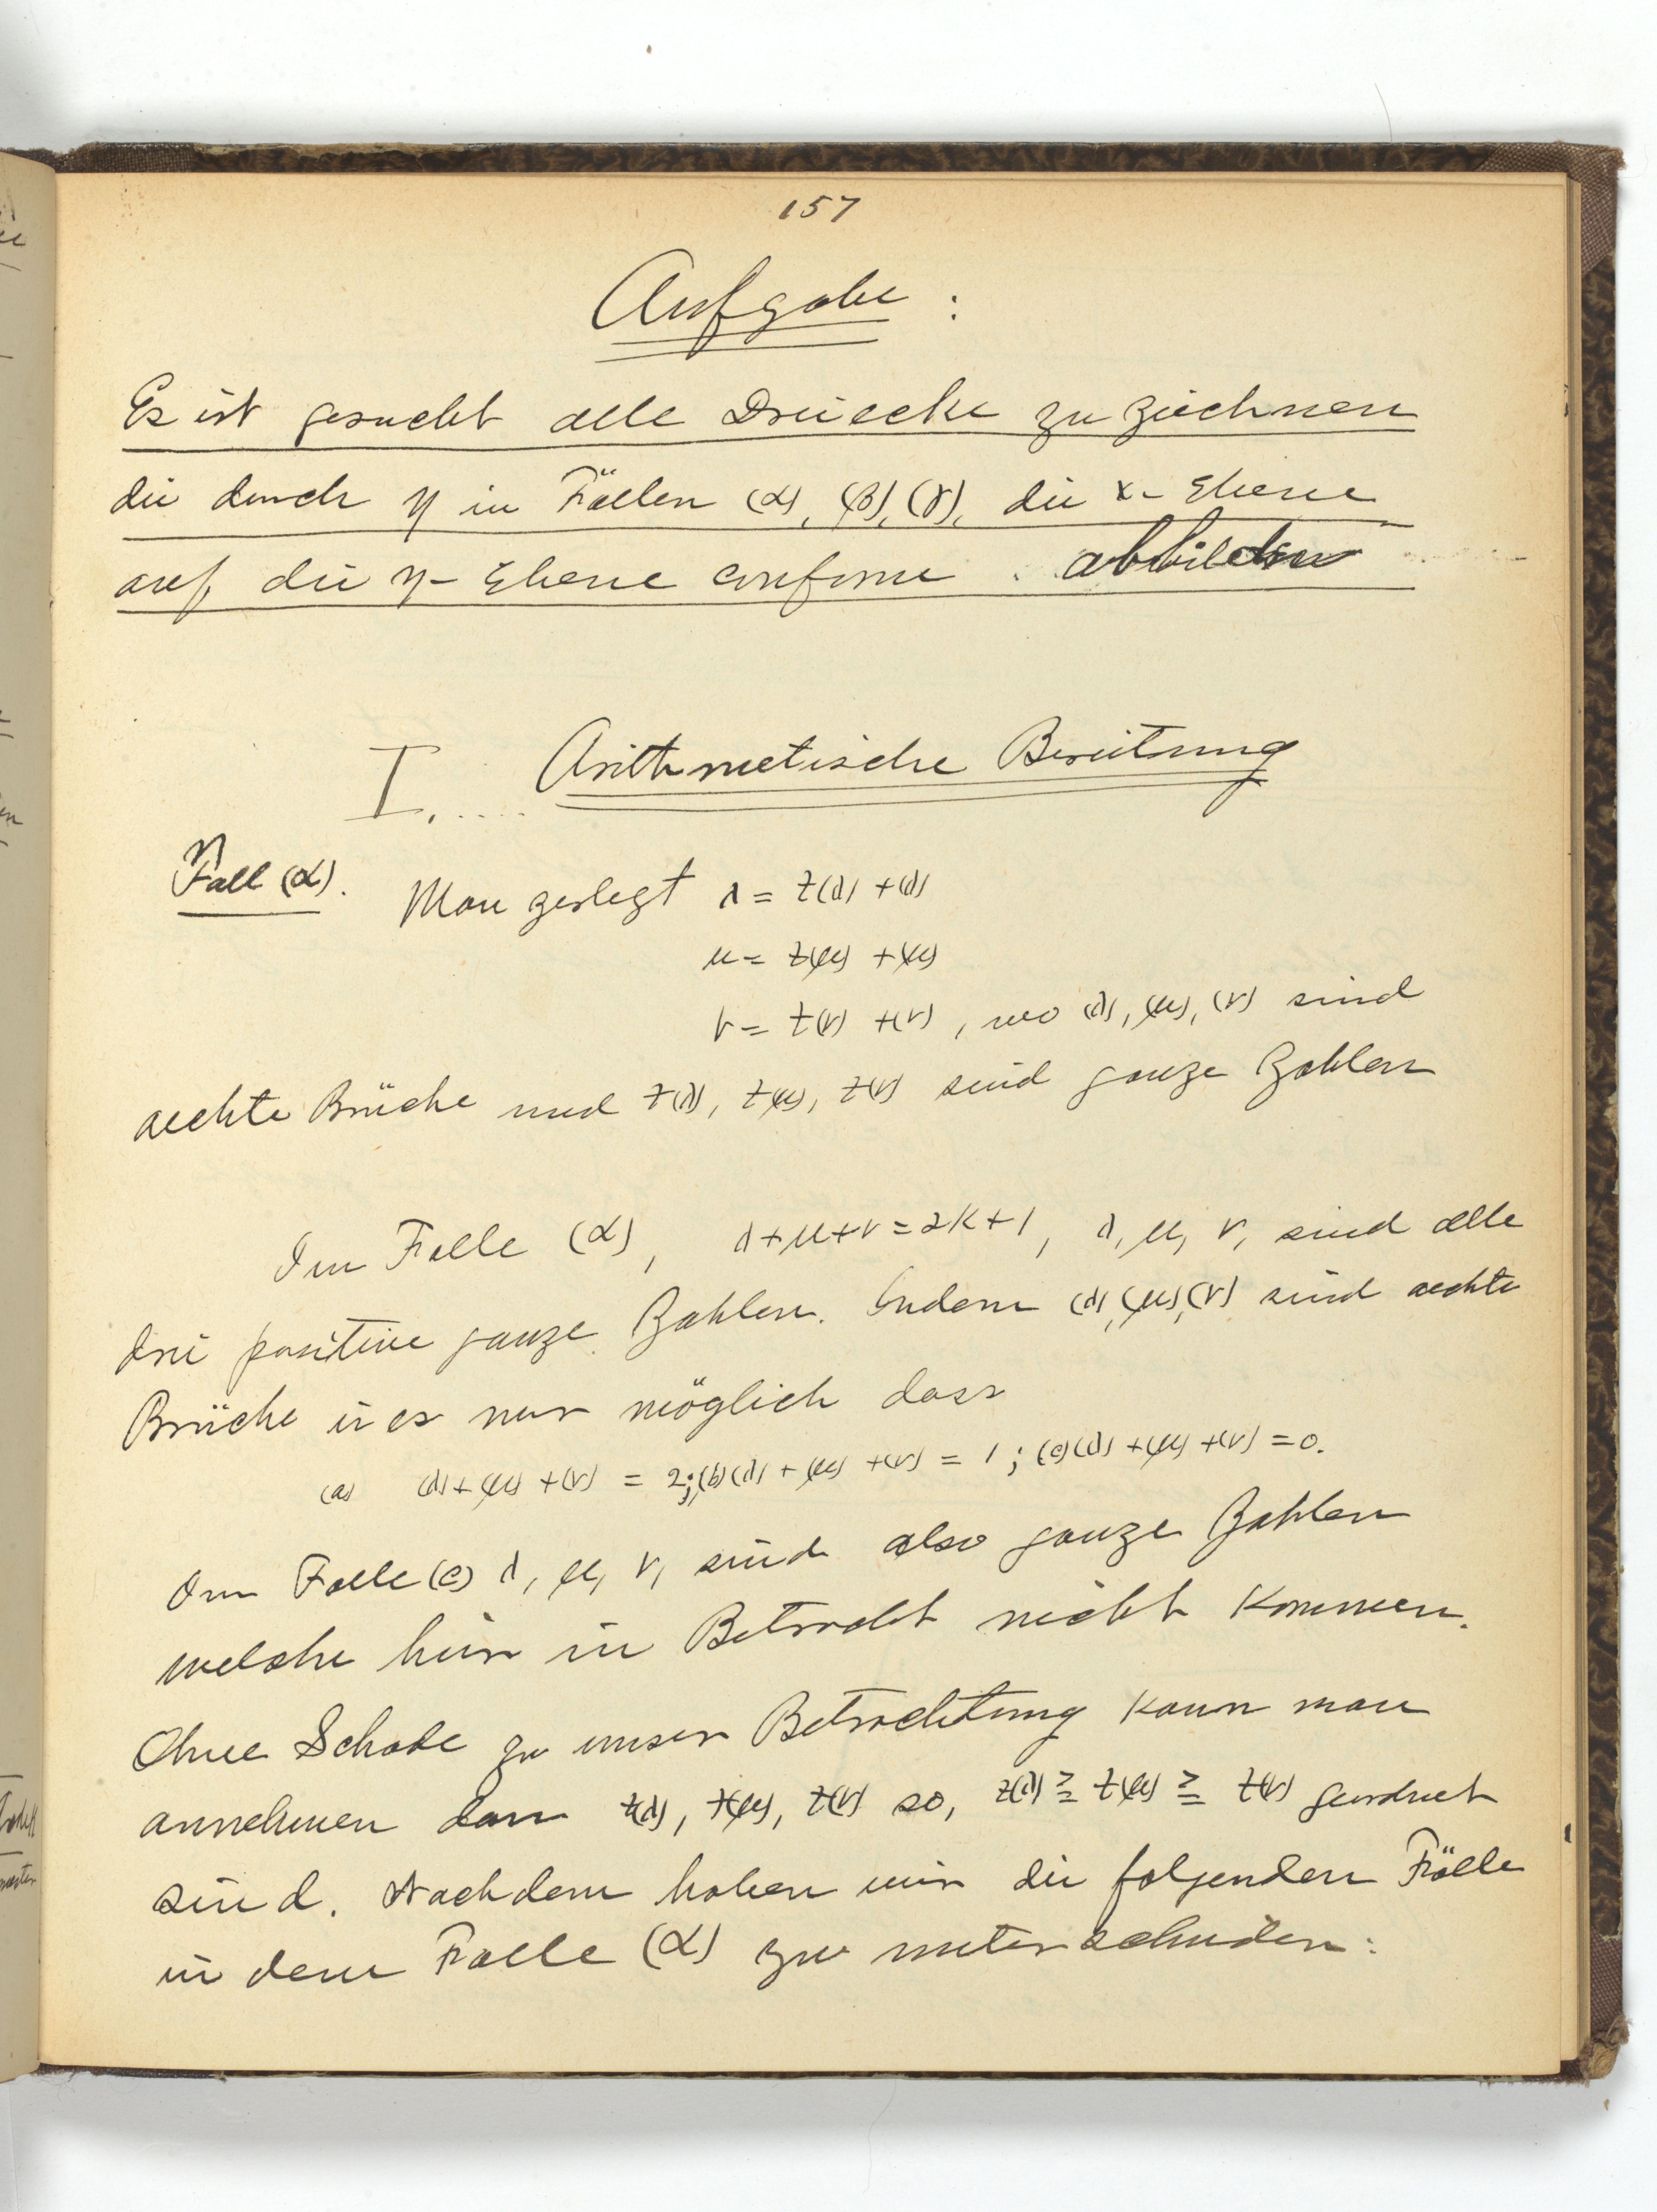 157
Aufgabe :
Es ist gesucht alle Dreiecke zu zeichnen
die durch η in Fällen (α), (β), (γ), die x-Ebene
auf die η-Ebene conforme abbilden
I. .... Arithmetische Bereitung
Fall (α). Man zerlegt λ = z(λ) + (λ)
μ = z(μ) + (μ)
ν = z(ν) + (ν), wo (λ), (μ), (ν) sind
aechte Brüche und z(λ), z(μ), z(ν) sind ganze Zahlen
Im Falle (α), λ+μ+ν=2K+1, λ, μ, ν, sind alle
drei positive ganze Zahlen. Indem (λ), (μ), (ν) sind aechte
Brüche is es nur möglich dass
(a) (λ)+(μ)+(ν) = 2; (b) (λ)+(μ)+(ν) = 1; (c) (λ)+(μ)+(ν) = 0.
Im Falle (c) λ, μ, ν, sind also ganze Zahlen
welche hier in Betracht nicht kommen.
Ohne Schade zu unser Betrachtung kann man
annehmen dass z(λ), z(μ), z(ν) so, z(λ) ≧ z(μ) ≧ z(ν) geordnet
sind. Nachdem haben wir die folgenden Fälle
in dem Falle (α) zu unterscheiden: